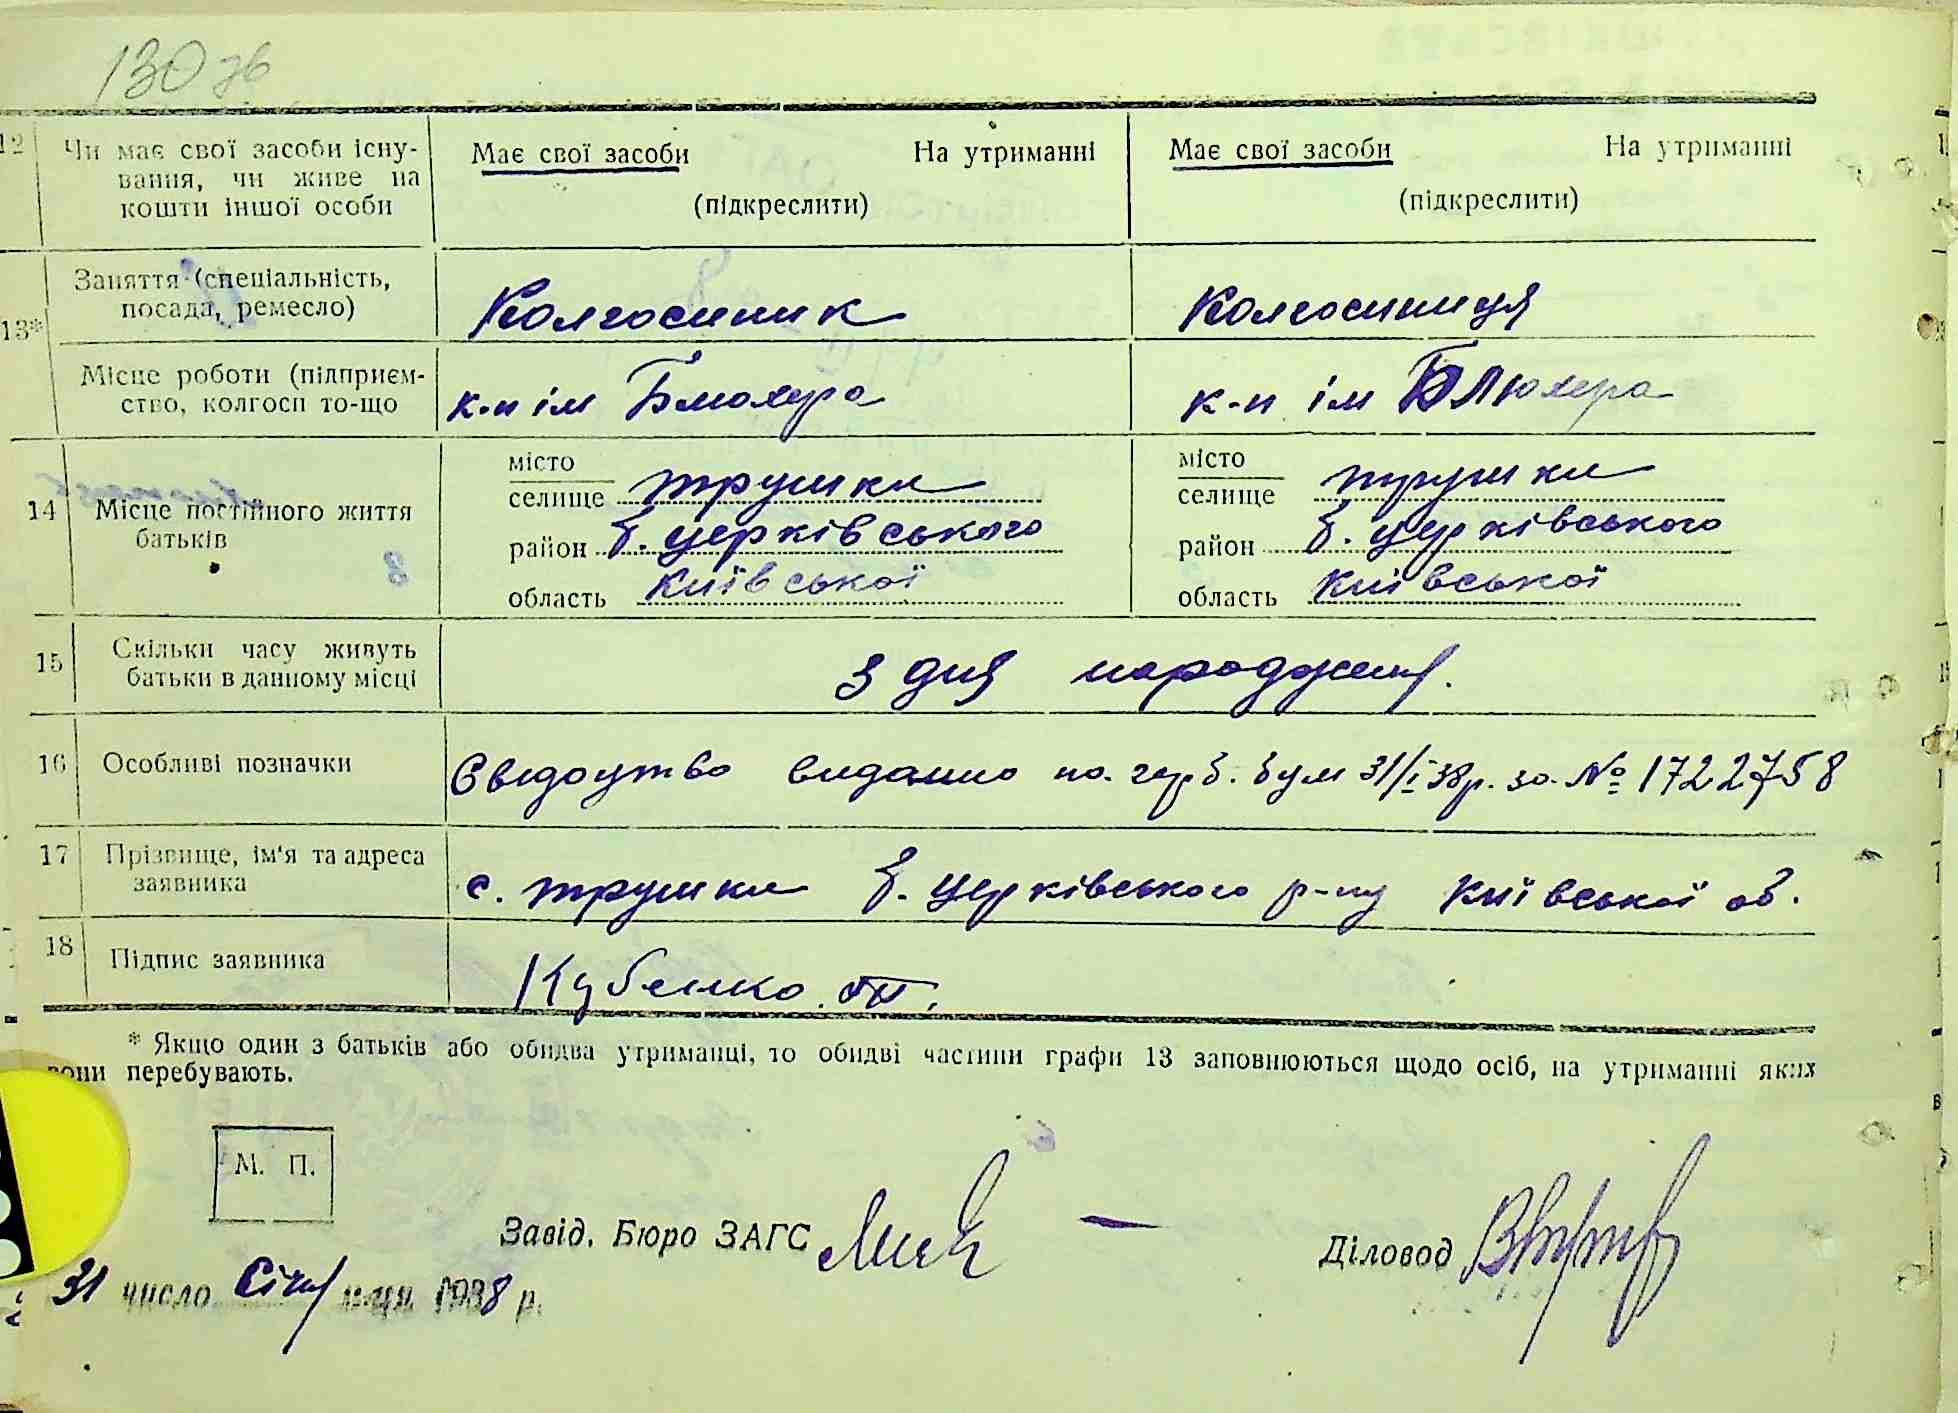 130 зв
12 Чи має свої засоби існу-
вання, чи живе на
кошти іншої особи
Має свої засоби На утриманні
(підкреслити)
Має свої засоби На утриманні
(підкреслити)
13* Заняття (спеціальність,
посада, ремесло)
Колгоспник
Колгоспниця
Місце роботи (підприєм-
ство, колгосп то-що
к-п ім Блюхера
к-п ім Блюхера
14 Місце постійного життя
батьків
місто
селище Трушки
район б. церківського
область Київської
місто
селище Трушки
район б. церківського
область Київської
15 Скільки часу живуть
батьки в данному місці
з дня народження.
16 Особливі позначки
Свідоцтво видано на герб. бум 31/I 38р. за № 1722758
17 Прізвище, ім'я та адреса
заявника
с. Трушки б. церківського р-ну Київської об.
18 Підпис заявника
Кубенко
* Якщо один з батьків або обидва утриманці, то обидві частини графи 13 заповнюються щодо осіб, на утриманні яких
вони перебувають.
М. П.
Завід. Бюро ЗАГС
Діловод
31 число Січня м-ця 1938 р.